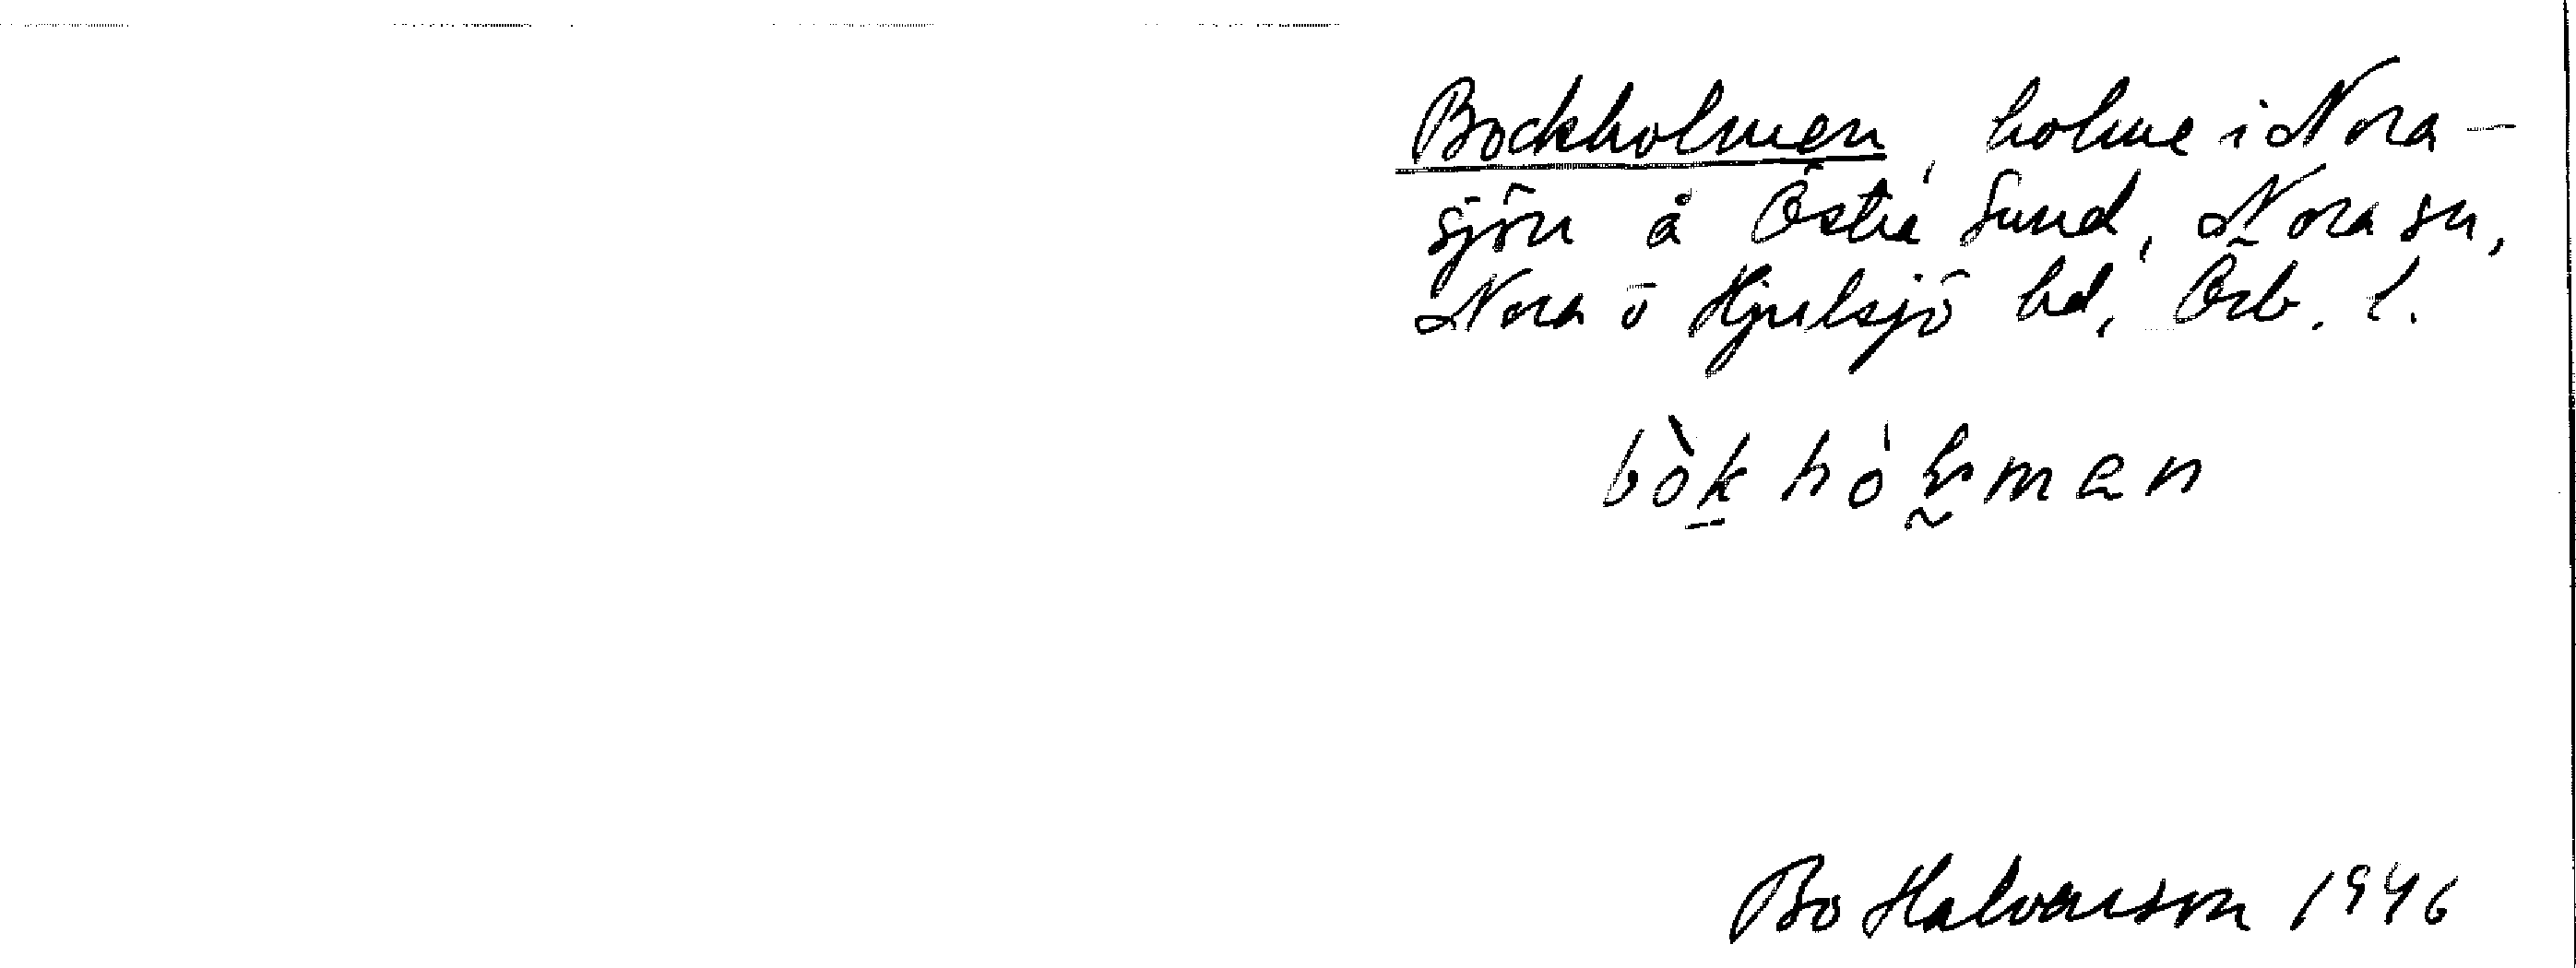 Bockholmen, holme i Nora-
sjön å Östra Sund, Nora sn,
Nora o Hjulsjö hd, Örb. l.
bòkhóɫmen
Bo Halvarson 1946